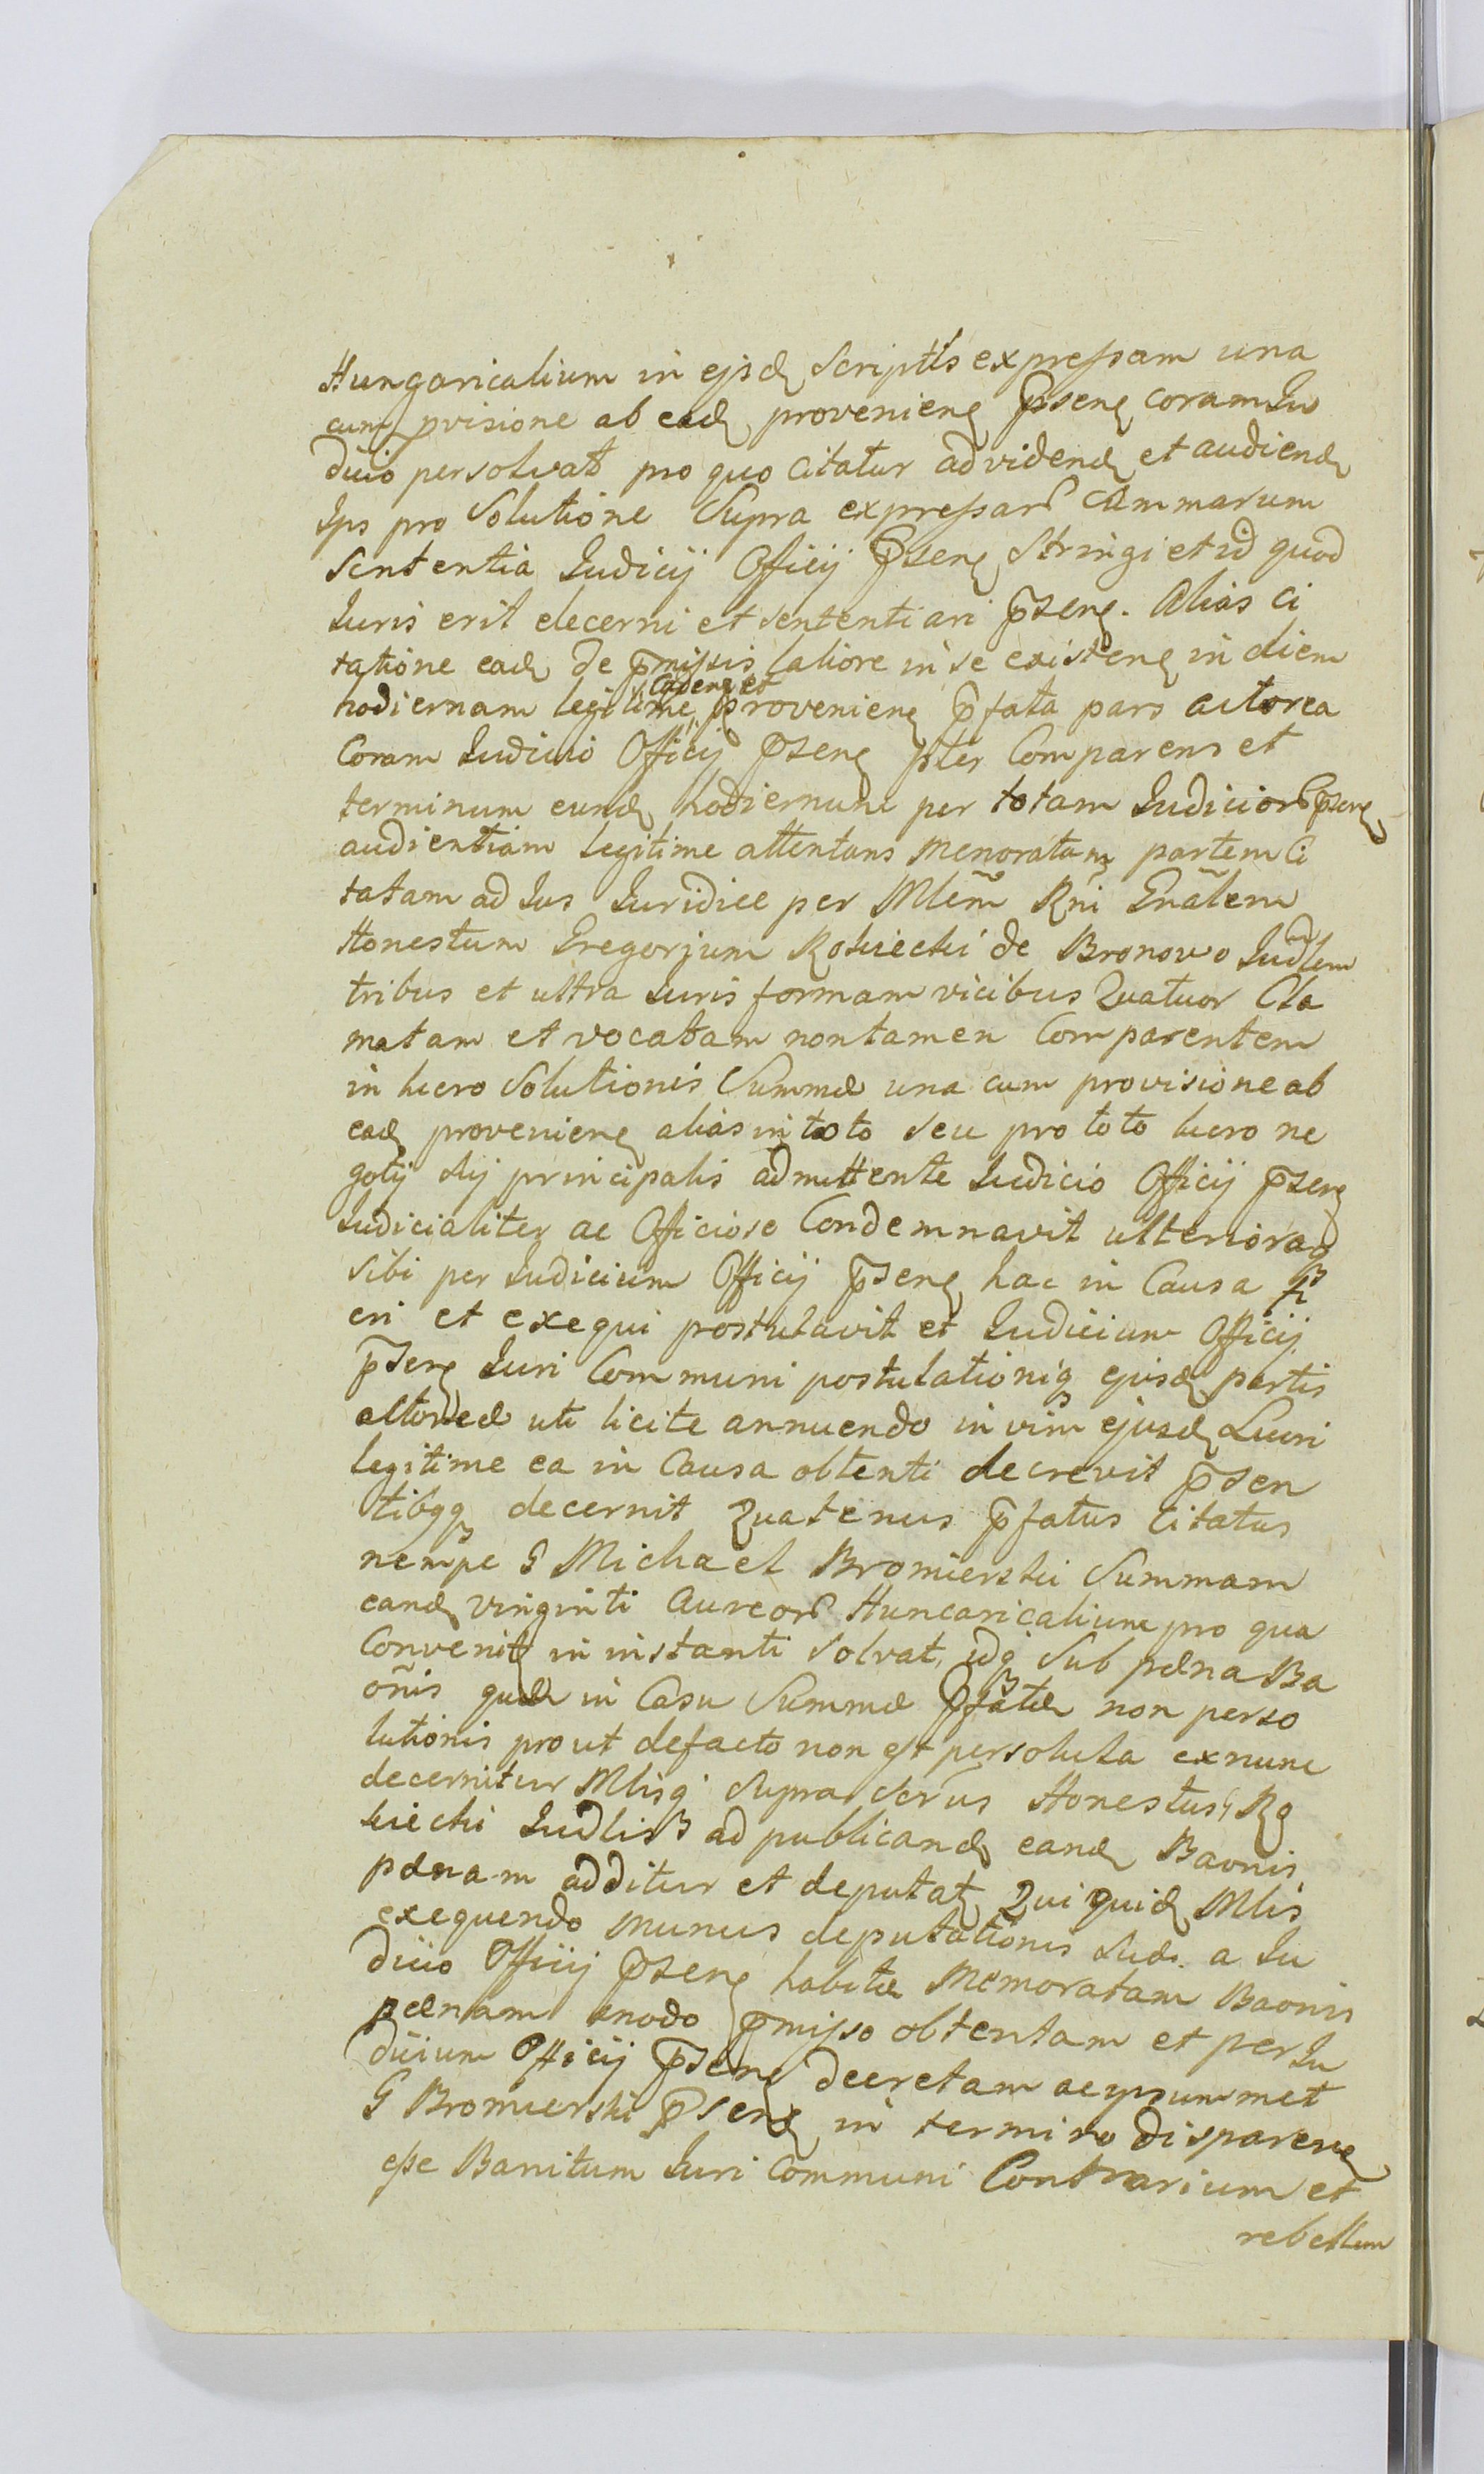 Hungaricalium in ejsd scriptis expressam una
cum pvisione ab ead provenien psen coram Iu
dicio persolvat pro quo citatur ad vidend et audiend
Ips pro Solutione Supra expressar Summarum
Sententia Iudicij Officij psen Stringi et id quod
Iuris erit decerni et sententiari psen. Alias ci
tatione ead de pmissis latiore in se existen in diem
hodiernam legitime Caden et provenien pfata pars actorea
Coram Iudicio Officij psen pter Comparens et
terminum eund hodiernum per totam Iudicior psen
audientiam legitime attentans Memoratam partem Ci
tatam ad Ius Iuridice per Mlem Rni Gnalem
Honestum Gregorjum Rokiecki de Bronowo Iudlem
tribus et ultra Iuris formam vicibus Quatuor Cla
matam et vocatam non tamen Comparentem
in lucro Solutionis Summæ una cum provisione ab
ead provenien alias in toto seu pro toto lucro ne
gotij sui principalis admittente Iudicio Officij psen
Iudicialiter ac Officiose Condemnavit ulteriora
sibi per Iudicium Officij psen hac in Causa fi
eri et exequi postulavit et Iudicium Officij
psen Iuri Communi postulationiq ejusd partis
actoreæ uti licite annuendo in vim ejusd Lucri
legitime ea in Causa obtenti decrevit psen
tibqq decernit Quatenus pfatus Citatus
nempe G Michael Bromierski Summam
eand vinginti Aureor Huncaricalium pro qua
Convenit in instanti solvat, idq Sub pæna Ba
onis quæ in Casu Summæ pfatæ non perso
lutionis prout defacto non est persoluta exnunc
decernitur Mlisq Supra Scrus Honestus Ro
kiecki Iudlis ad publicand eand Baonis
pænam additur et deputat Qui quid Mlis
exequendo munus deputationis suæ a Iu
dicio Officij psen habitæ Memoratam Baonis
pænam modo pmisso obtentam et per Iu
dicium Officij psen decretam ac ipsummet
G Bromierski psen in termino disparen
esse Banitum Iuri Communi Contrarium et
rebellem